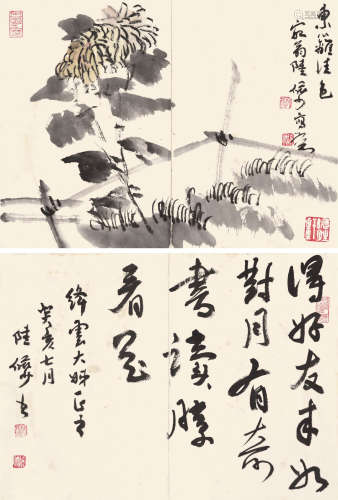 東籬佳色
寂翁陸儼少寫
得好友來如
對月有奇
書讀勝
看花
綘雲大姊正之
癸亥七月
陸儼少